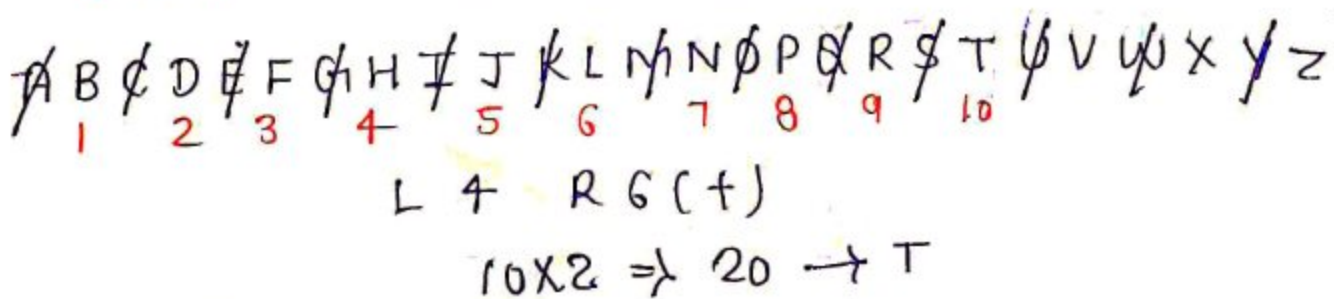 A B C D E F G H I J K L M N O P Q R S T U V W X Y Z
1 2 3 4 5 6 7 8 9 10
L 4 R 6 (+)
10X2 ⇒ 20 → T